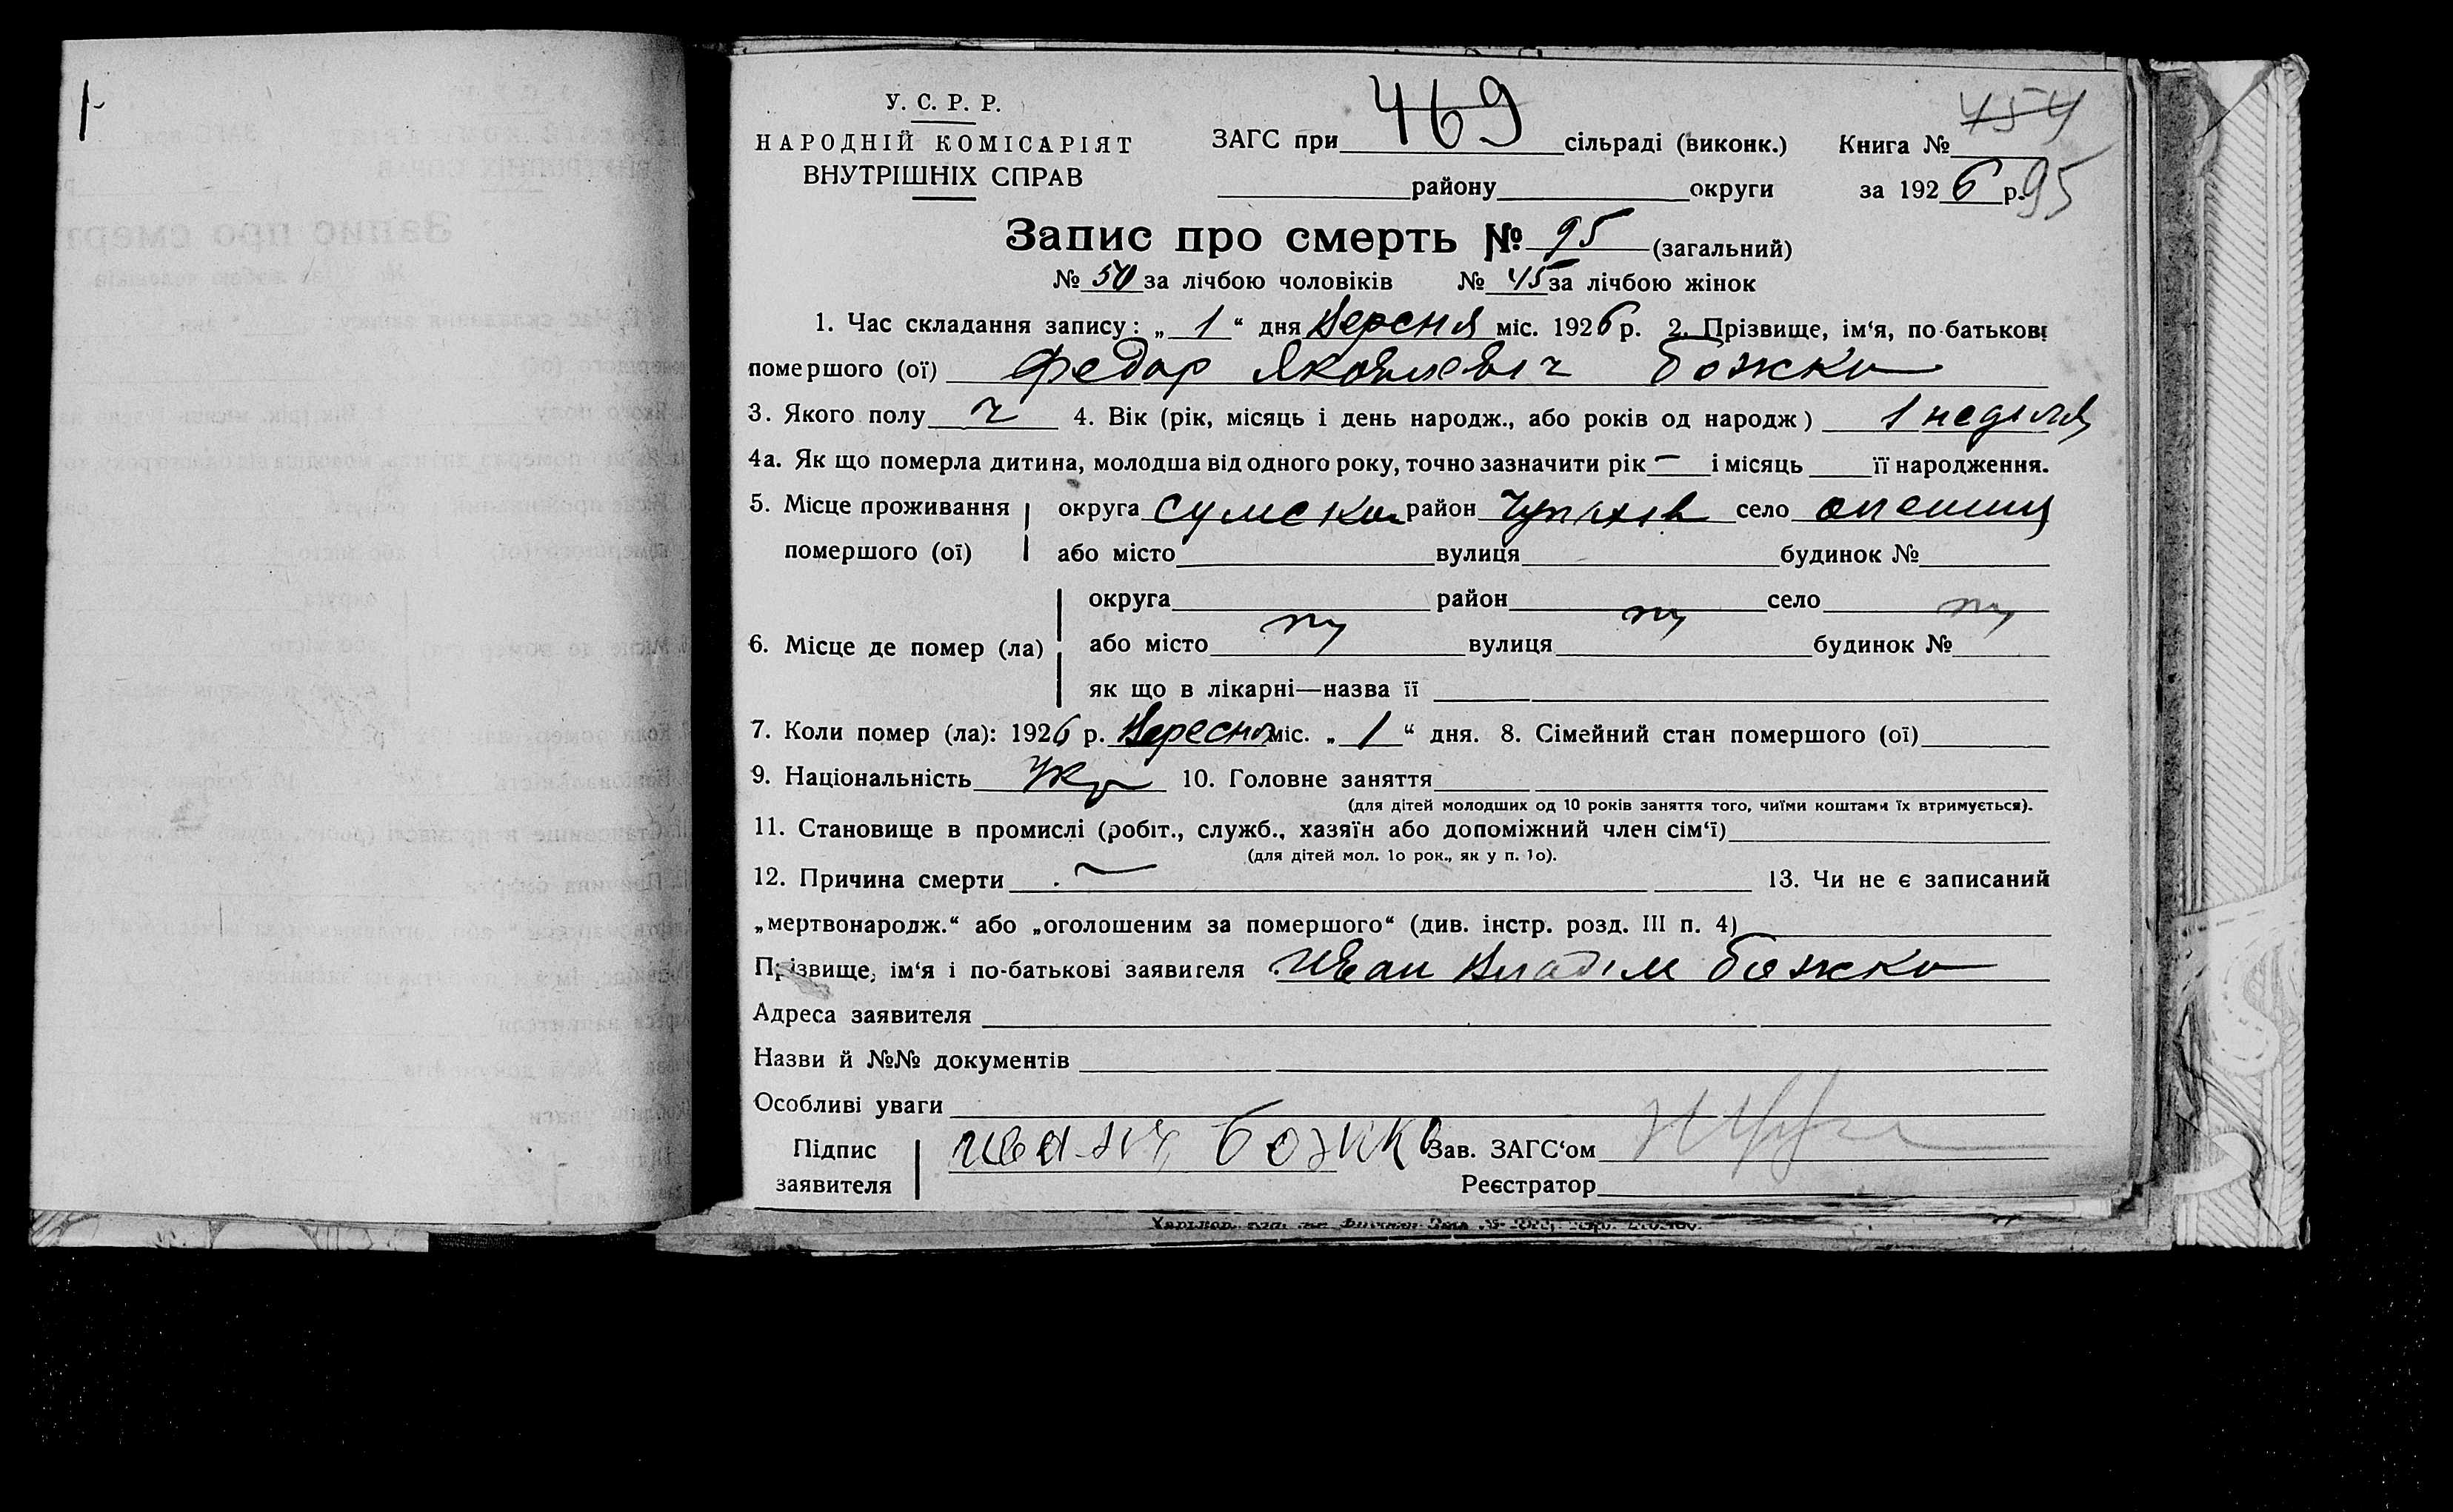 У. С. Р. Р.
НАРОДНІЙ КОМІСАРІЯТ
ВНУТРІШНІХ СПРАВ
ЗАГС при 469 сільраді (виконк.) Книга № 454
району округи за 1926 р. 95
Запис про смерть № 95 (загальний)
№ 50 за лічбою чоловіків № 45 за лічбою жінок
1. Час складання запису: „ 1 “ дня Вересня міс. 1926 р. 2. Прізвище, ім‘я, по-батькові
помершого (ої) Федор Яковлевіч Божко
3. Якого полу ч 4. Вік (рік, місяць і день народж., або років од народж) 1 неділя
4а. Як що померла дитина, молодша від одного року, точно зазначити рік — і місяць її народження.
5. Місце проживання округа Сумска район Чупахів село опешиц
помершого (ої) або місто вулиця будинок №
округа район село
6. Місце де помер (ла) або місто вулиця будинок №
як що в лікарні—назва її
7. Коли помер (ла): 1926 р. Вересня міс. „ 1 “ дня. 8. Сімейний стан помершого (ої)
9. Національність Укр 10. Головне заняття
(для дітей молодших од 10 років заняття того, чиїми коштами їх втримується).
11. Становище в промислі (робіт., служб., хазяїн або допоміжний член сім‘ї)
(для дітей мол. 1о рок., як у п. 1о).
12. Причина смерти — 13. Чи не є записаний
„мертвонародж.“ або „оголошеним за помершого“ (див. інстр. розд. III п. 4)
Прізвище, ім‘я і по-батькові заявителя Иван Владім Божко
Адреса заявителя
Назви й №№ документів
Особливі уваги
Підпис Божко Зав. ЗАГС‘ом
заявителя Реєстратор